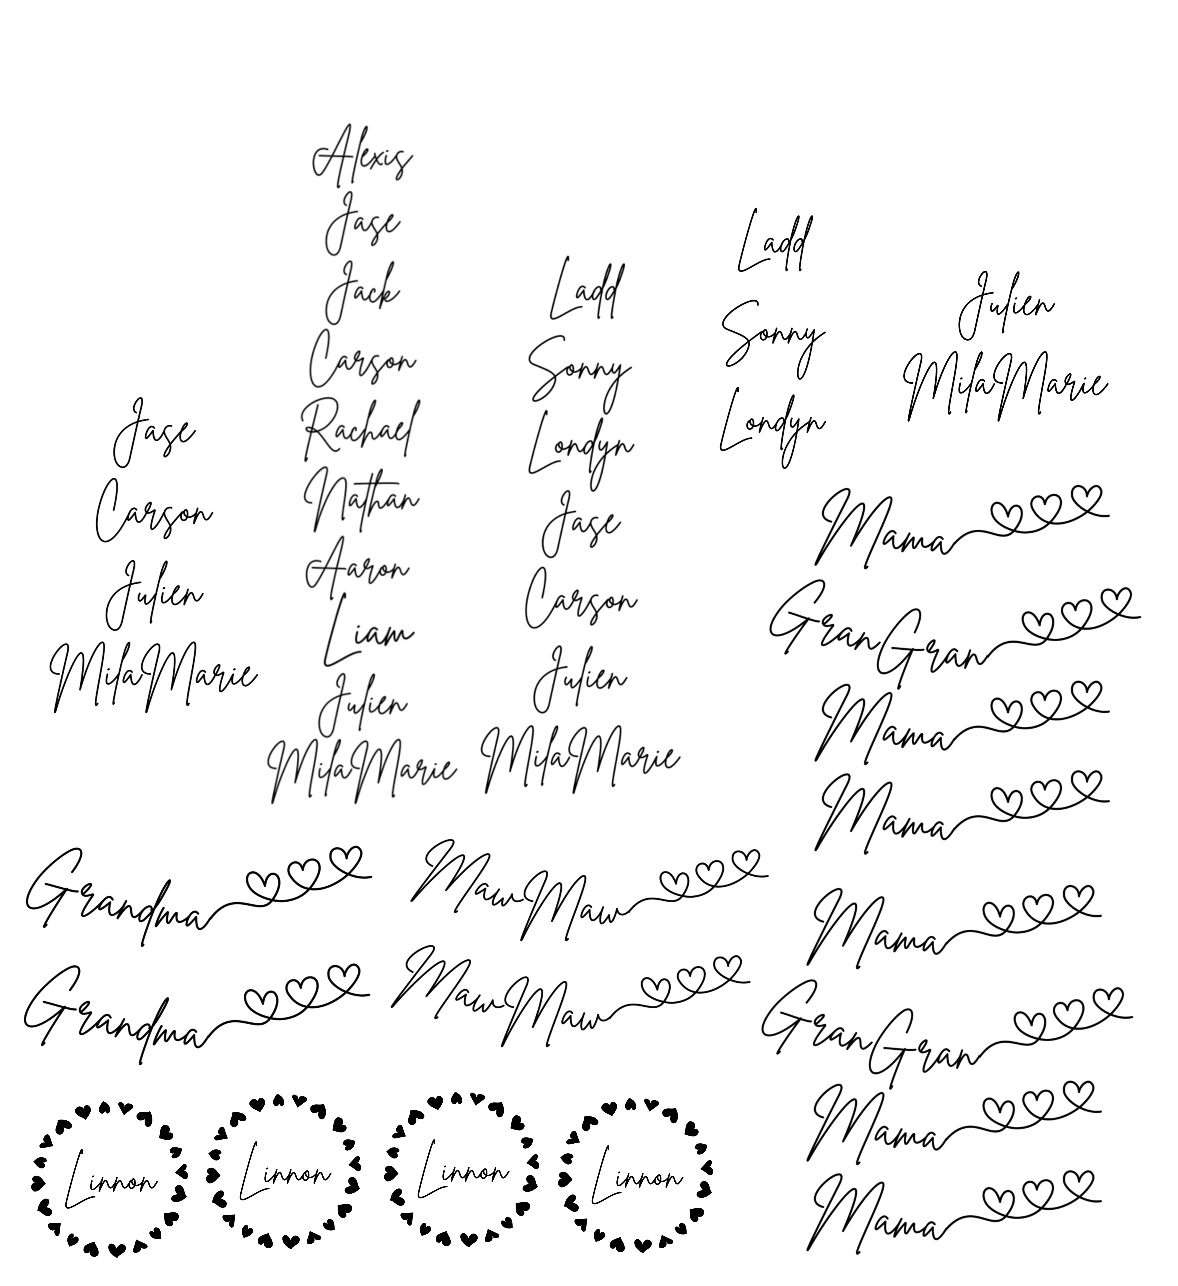 Jase
Carson
Julien
MilaMarie
Alexis
Jase
Jack
Carson
Rachael
Nathan
Aaron
Liam
Julien
MilaMarie
Ladd
Sonny
Londyn
Jase
Carson
Julien
MilaMarie
Ladd
Sonny
Londyn
Julien
MilaMarie
Mama
GranGran
Mama
Mama
Mama
GranGran
Mama
Mama
Grandma
MawMaw
Grandma
MawMaw
Linnon
Linnon
Linnon
Linnon